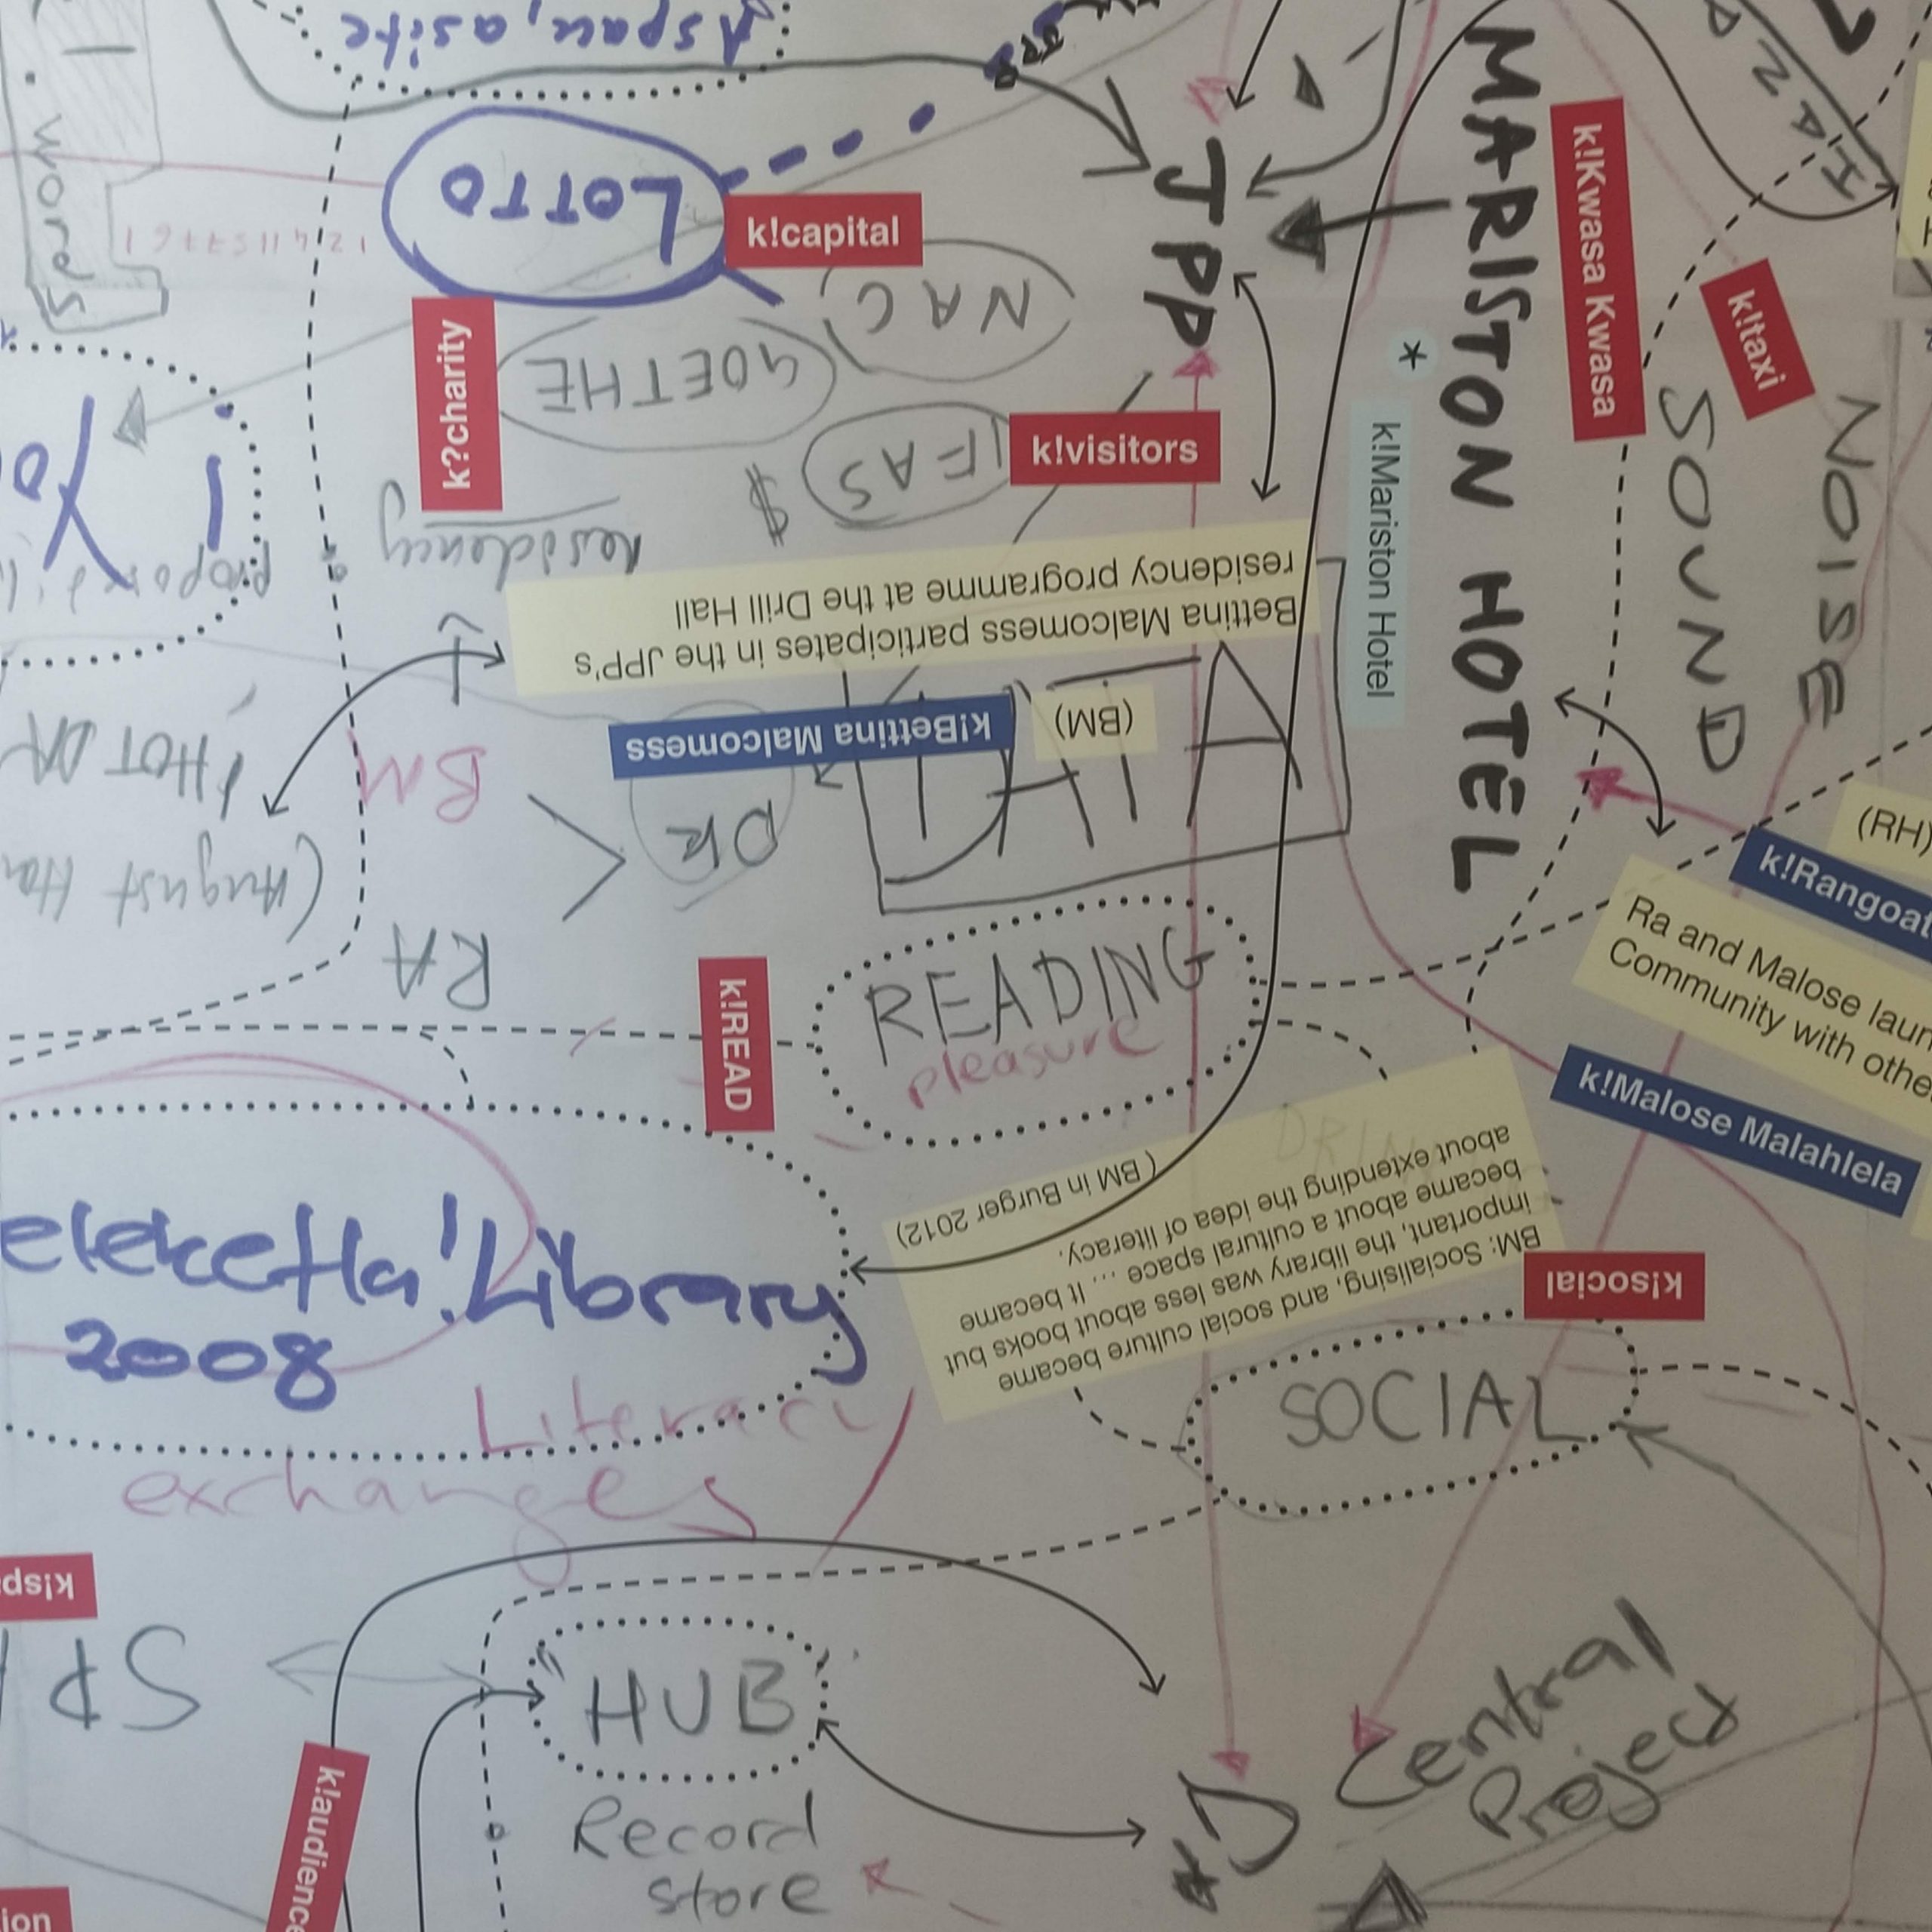 A space, a site
words
LOTTO
k!capital
NAC
GOETHE
k?charity
IFAS
k!visitors
$
residency
JPP
MARISTON HOTEL
k!Kwasa Kwasa
k!taxi
SOUND
NOISE
*
k!Mariston Hotel
Bettina Malcomess participates in the JPP's
residency programme at the Drill Hall
k!Bettina Malcomess
(BM)
DATA
BM
DR
RA
(August Ho
(RH)
k!Rangoat
Ra and Malose laun
Community with othe
k!Malose Malahlela
k!READ
READING
pleasure
BM: Socialising, and social culture became
important, the library was less about books but
became about a cultural space ... It became
about extending the idea of literacy.
(BM in Burger 2012)
k!social
SOCIAL
eleketla! Library
2008
Literacy
exchanges
k!sp
SP
HUB
Record
store
k!audience
Central
Project
ion